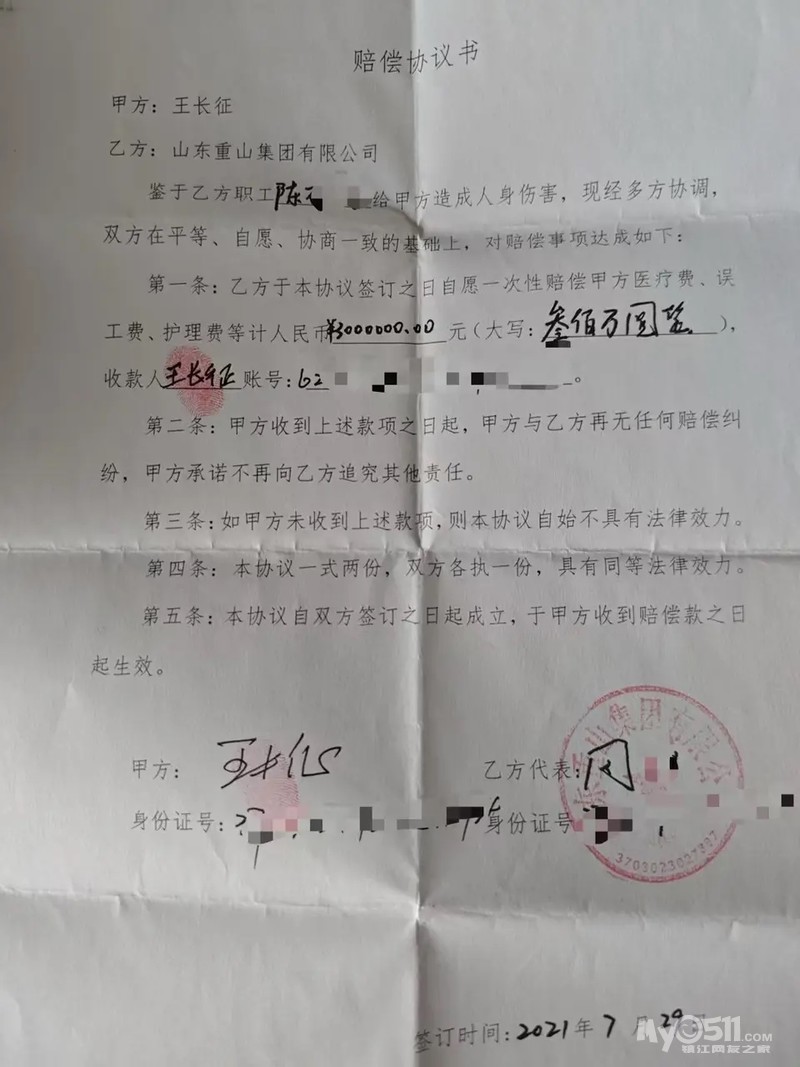 赔偿协议书
甲方：王长征
乙方：山东重山集团有限公司
鉴于乙方职工陈 给甲方造成人身伤害，现经多方协调，
双方在平等、自愿、协商一致的基础上，对赔偿事项达成如下：
第一条：乙方于本协议签订之日自愿一次性赔偿甲方医疗费、误
工费、护理费等计人民币¥3000000.00元（大写：叁佰万圆整），
收款人王长征账号：62 。
第二条：甲方收到上述款项之日起，甲方与乙方再无任何赔偿纠
纷，甲方承诺不再向乙方追究其他责任。
第三条：如甲方未收到上述款项，则本协议自始不具有法律效力。
第四条：本协议一式两份，双方各执一份，具有同等法律效力。
第五条：本协议自双方签订之日起成立，于甲方收到赔偿款之日
起生效。
甲方：王长征 乙方代表：
身份证号： 身份证号
集团有限公
3703023027387
签订时间：2021年7月29
my0511.com
镇江网友之家